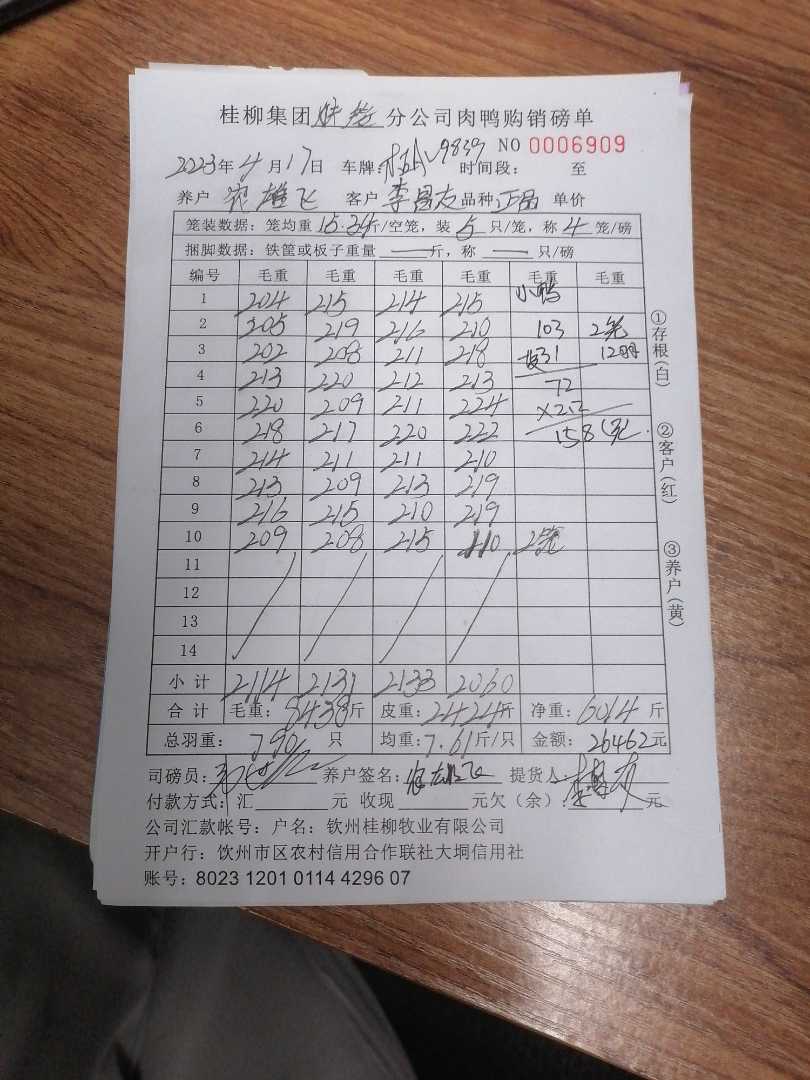 桂柳集团 分公司肉鸭购销磅单
NO 0006909
2023年4月17日 车牌: 9839 时间段: 至
养户 农雄飞 客户 李昌友 品种 正品 单价
笼装数据: 笼均重 15.34 斤/空笼, 装 5 只/笼, 称 4 笼/磅
捆脚数据: 铁筐或板子重量 — 斤, 称 — 只/磅
编号 毛重 毛重 毛重 毛重 毛重 毛重
1 204 215 214 215 小鸭
2 205 219 216 210 103 2笼
3 202 208 211 218 31
4 213 220 212 213 72
5 220 209 211 224 ×2.2
6 218 217 220 222 158元.
7 214 211 211 210
8 213 209 213 219
9 216 215 210 219
10 209 208 215 110 2笼
11
12
13
14
小计 2114 2131 2133 2060
合计 毛重: 8438斤 皮重: 2424斤 净重: 6014 斤
总羽重: 790 只 均重: 7.61斤/只 金额: 26462元
司磅员: 养户签名: 农雄飞 提货人: 李昌友
付款方式: 汇 元 收现 元欠(余): 元
公司汇款帐号: 户名: 钦州桂柳牧业有限公司
开户行: 饮州市区农村信用合作联社大垌信用社
账号: 8023 1201 0114 4296 07
①存根(白)
②客户(红)
③养户(黄)